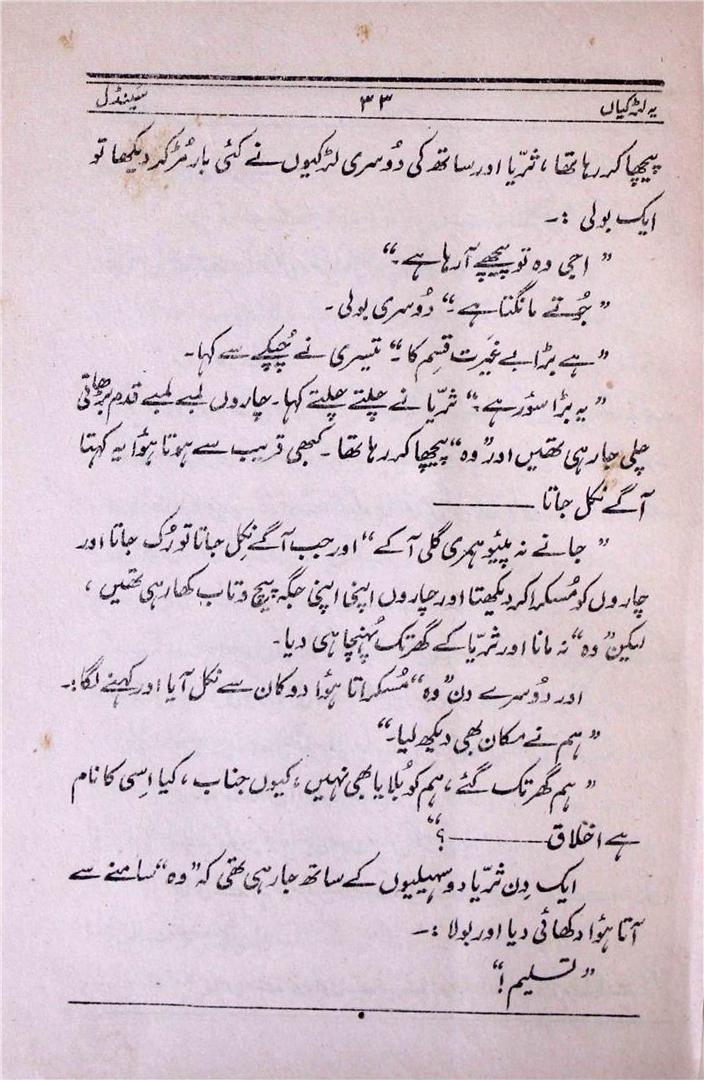 یہ لڑکیاں ۳۳ سینڈل
پیچھا کر رہا تھا، ثریّا اور ساتھ کی دُوسری لڑکیوں نے کئی بار مُڑ کر دیکھا تو
ایک بولی :۔
” اجی وہ تو پیچھے آرہا ہے۔“
” جُوتے مانگتا ہے۔“ دُوسری بولی۔
” ہے بڑا بے غیَرت قِسم کا۔“ تیسری نے چُپکے سے کہا۔
” یہ بڑا سوٗر ہے۔“ ثریّا نے چلتے چلتے کہا۔ چاروں لمبے لمبے قدم بڑھاتی
چلی جارہی تھیں اور ”وہ“ پیچھا کر رہا تھا۔ کبھی قریب سے ہوتا ہؤا یہ کہتا
آگے نکل جاتا ———
” جانے نہ پیئو ہمری گلی آکے “ اور جب آگے نِکل جاتا تو رُک جاتا اور
چاروں کو مُسکرا کر دیکھتا اور چاروں اپنی اپنی جگہ پیچ و تاب کھا رہی تھیں ،
لیکن ”وہ“ نہ مانا اور ثریّا کے گھر تک پُہنچا ہی دیا۔
اور دُوسرے دِن ”وہ“ مُسکراتا ہؤا دوکان سے نکل آیا اور کہنے لگا :۔
” ہم نے مکان بھی دیکھ لیا۔“
” ہم گھر تک گئے ، ہم کو بُلایا بھی نہیں ، کیوں جناب ، کیا اِسی کا نام
ہے اخلاق ——— ؟“
ایک دِن ثریّا دو سہیلیوں کے ساتھ جارہی تھی کہ ”وہ“ سامنے سے
آتا ہؤا دکھائی دیا اور بولا :۔
” تسلیم !“